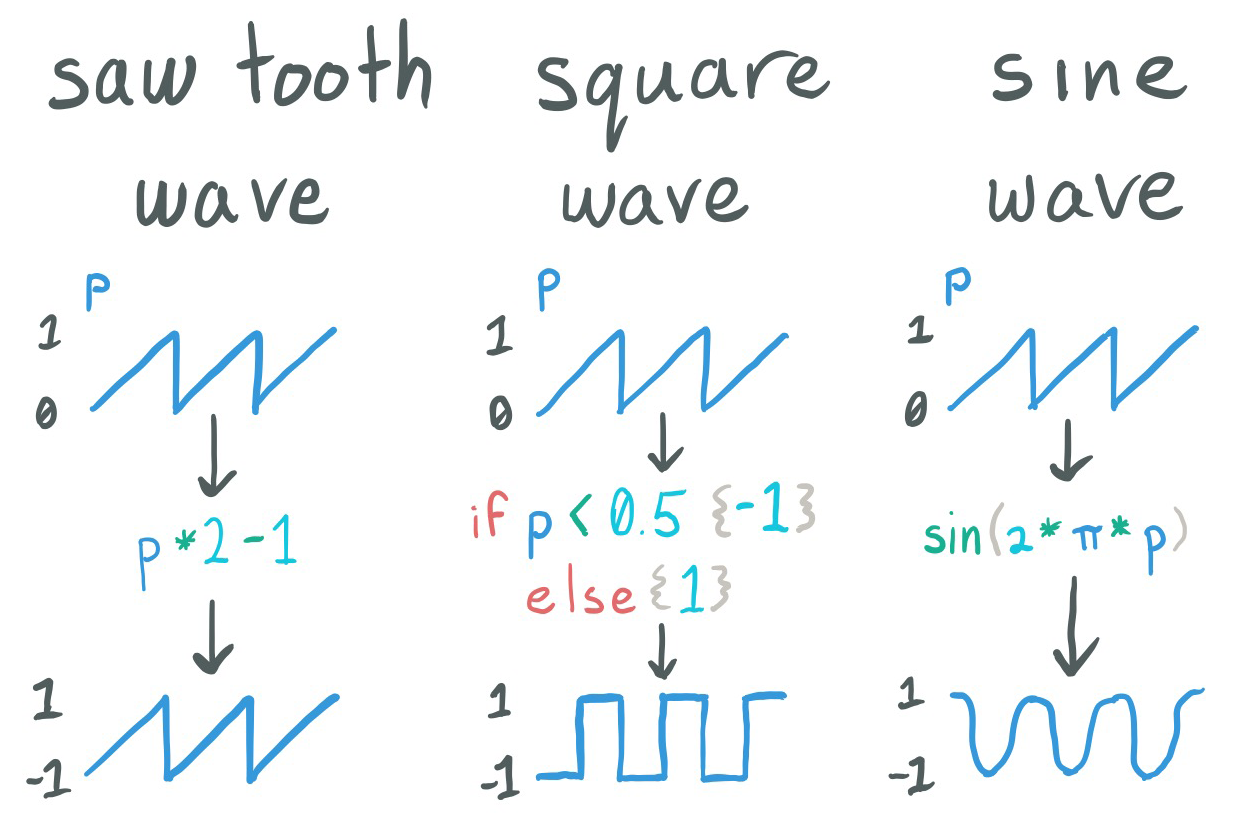 saw tooth
wave
p
1
0
p*2-1
1
-1
square
wave
p
1
0
if p < 0.5 {-1}
else {1}
1
-1
sine
wave
p
1
0
sin(2*π*p)
1
-1